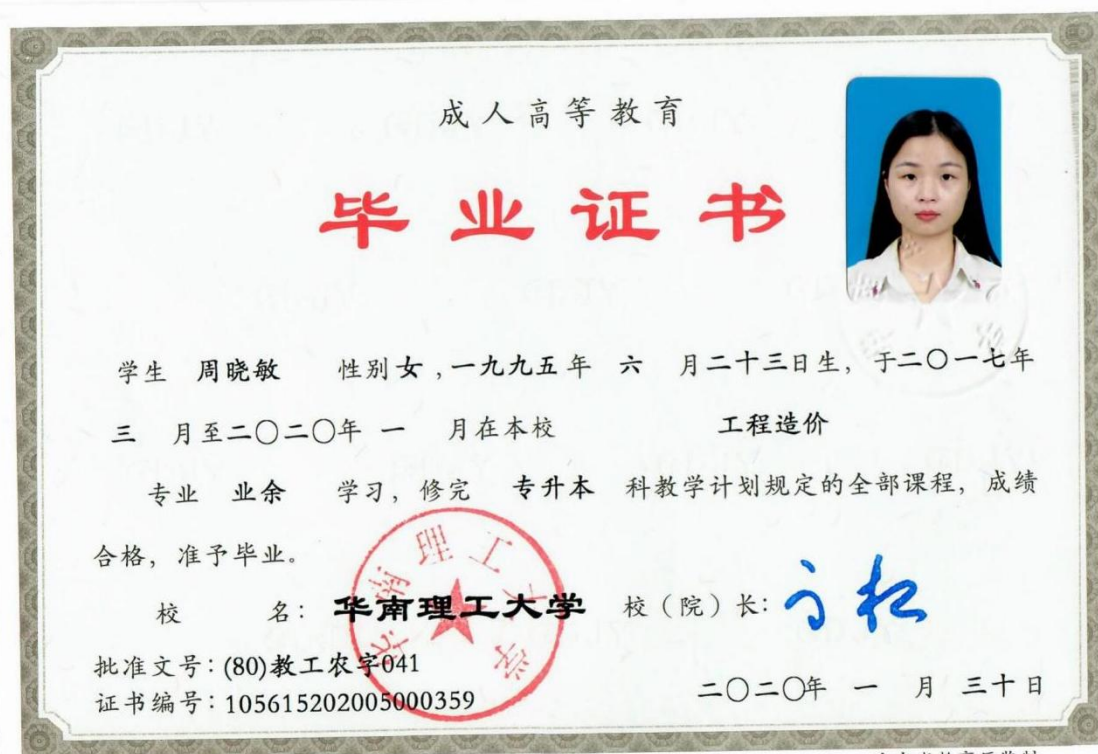 成人高等教育
毕业证书
学生 周晓敏 性别女,一九九五年 六 月二十三日生,于二〇一七年
三 月至二〇二〇年 一 月在本校 工程造价
专业 业余 学习,修完 专升本 科教学计划规定的全部课程,成绩
合格,准予毕业。
校 名:华南理工大学 校(院)长:
华南理工大学
批准文号:(80)教工农字041
证书编号:105615202005000359
二〇二〇年 一 月 三十日